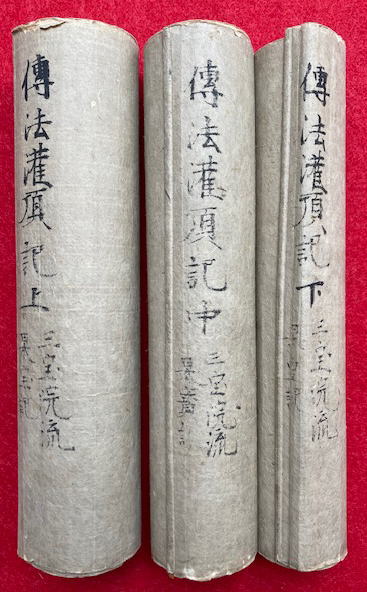 傳法灌頂記上
三宝院流
傳法灌頂記中
三宝院流
傳法灌頂記下
三宝院流